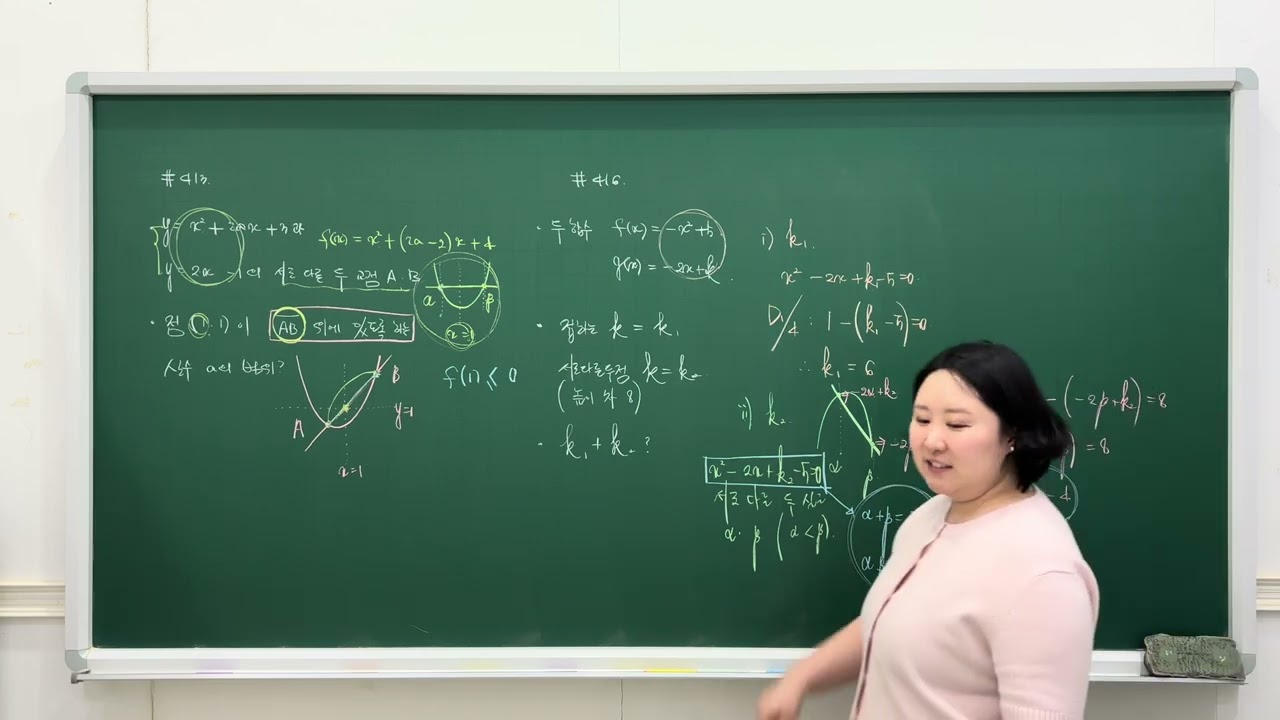 #413.
y = x² + 2ax + 3과
y = 2x - 1의 서로 다른 두 교점 A, B
f(x) = x² + (2a-2)x + 4
α β
x=1
· 점 (1, 1)이 AB 위에 있도록 하는
실수 a의 범위?
f(1) ≤ 0
A
B
y=1
x=1
#416.
· 두 함수 f(x) = -x² + 5
g(x) = -2x + k
· 접하는 k = k₁
서로다른두점 k = k₂
(높이 차 8)
· k₁ + k₂ ?
i) k₁.
x² - 2x + k₁ - 5 = 0.
D/4 : 1 - (k₁ - 5) = 0
∴ k₁ = 6
ii) k₂.
-2x + k₂
α
β
x² - 2x + k₂ - 5 = 0
서로 다른 두 실근
α, β (α < β).
- (-2β + k₂) = 8
) = 8
α + β =
- 4